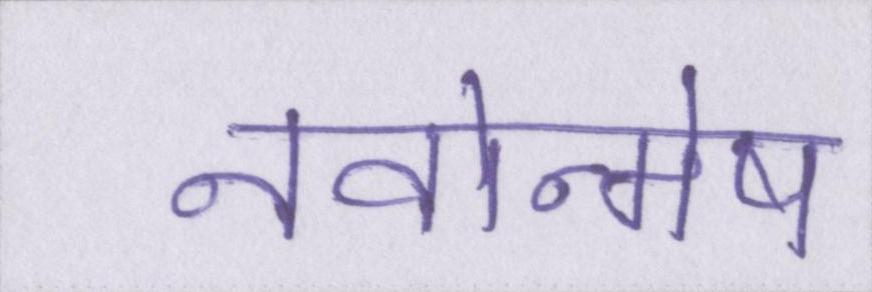 नवोन्मेष